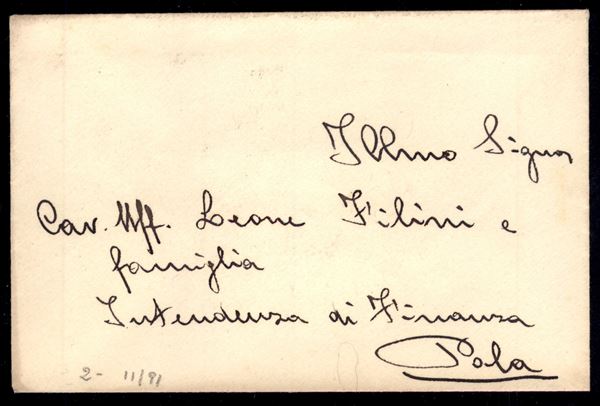 Illmo Signor
Cav. Uff. Leone Filini e
famiglia
Intendenza di Finanza
Pola
2- 11/91